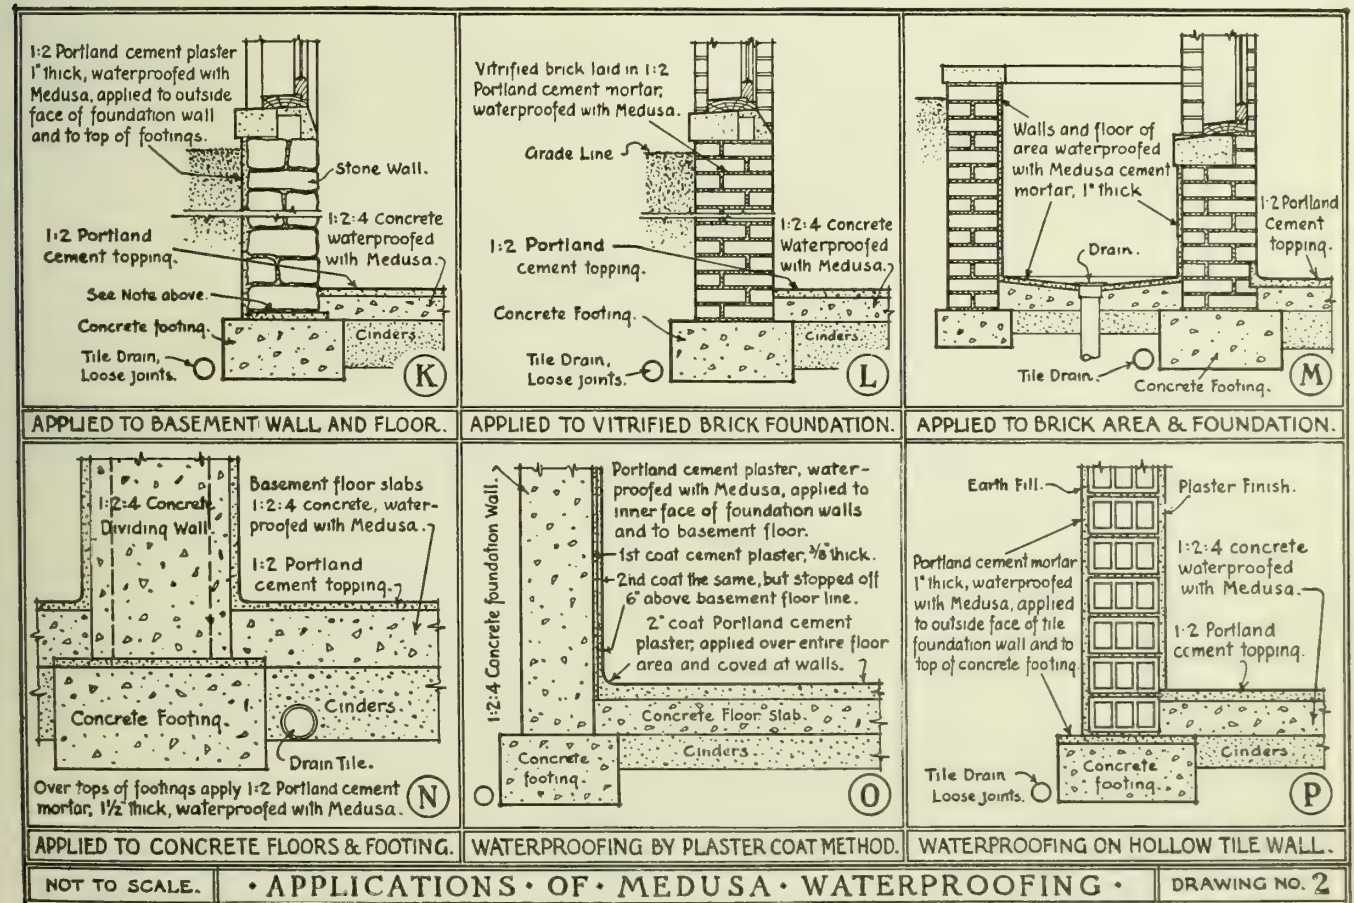 1:2 Portland cement plaster
1" thick, waterproofed with
Medusa, applied to outside
face of foundation wall
and to top of footings.
Stone Wall.
1:2:4 Concrete
waterproofed
with Medusa.
1:2 Portland
cement topping.
See Note above.
Concrete footing.
Cinders
Tile Drain,
Loose joints.
K
APPLIED TO BASEMENT WALL AND FLOOR.
Vitrified brick laid in 1:2
Portland cement mortar,
waterproofed with Medusa.
Grade Line
1:2:4 Concrete
Waterproofed
with Medusa.
1:2 Portland
cement topping.
Concrete Footing.
Cinders
Tile Drain,
Loose joints.
L
APPLIED TO VITRIFIED BRICK FOUNDATION.
Walls and floor of
area waterproofed
with Medusa cement
mortar, 1" thick
1:2 Portland
Cement
topping.
Drain.
Tile Drain.
Concrete Footing.
M
APPLIED TO BRICK AREA & FOUNDATION.
1:2:4 Concrete
Dividing Wall
Basement floor slabs
1:2:4 concrete, water-
proofed with Medusa.
1:2 Portland
cement topping.
Concrete Footing.
Cinders.
Drain Tile.
Over tops of footings apply 1:2 Portland cement
mortar, 1½" thick, waterproofed with Medusa.
N
APPLIED TO CONCRETE FLOORS & FOOTING.
1:2:4 Concrete foundation Wall.
Portland cement plaster, water-
proofed with Medusa, applied to
inner face of foundation walls
and to basement floor.
1st coat cement plaster, 3/8" thick.
2nd coat the same, but stopped off
6" above basement floor line.
2" coat Portland cement
plaster, applied over entire floor
area and coved at walls.
Concrete Floor Slab.
Cinders.
Concrete
footing.
O
WATERPROOFING BY PLASTER COAT METHOD.
Earth Fill.
Plaster Finish.
Portland cement mortar
1" thick, waterproofed
with Medusa, applied
to outside face of tile
foundation wall and to
top of concrete footing
1:2:4 concrete
waterproofed
with Medusa.
1:2 Portland
cement topping.
Cinders.
Concrete
footing.
Tile Drain
Loose joints.
P
WATERPROOFING ON HOLLOW TILE WALL.
NOT TO SCALE.
· APPLICATIONS · OF · MEDUSA · WATERPROOFING ·
DRAWING NO. 2